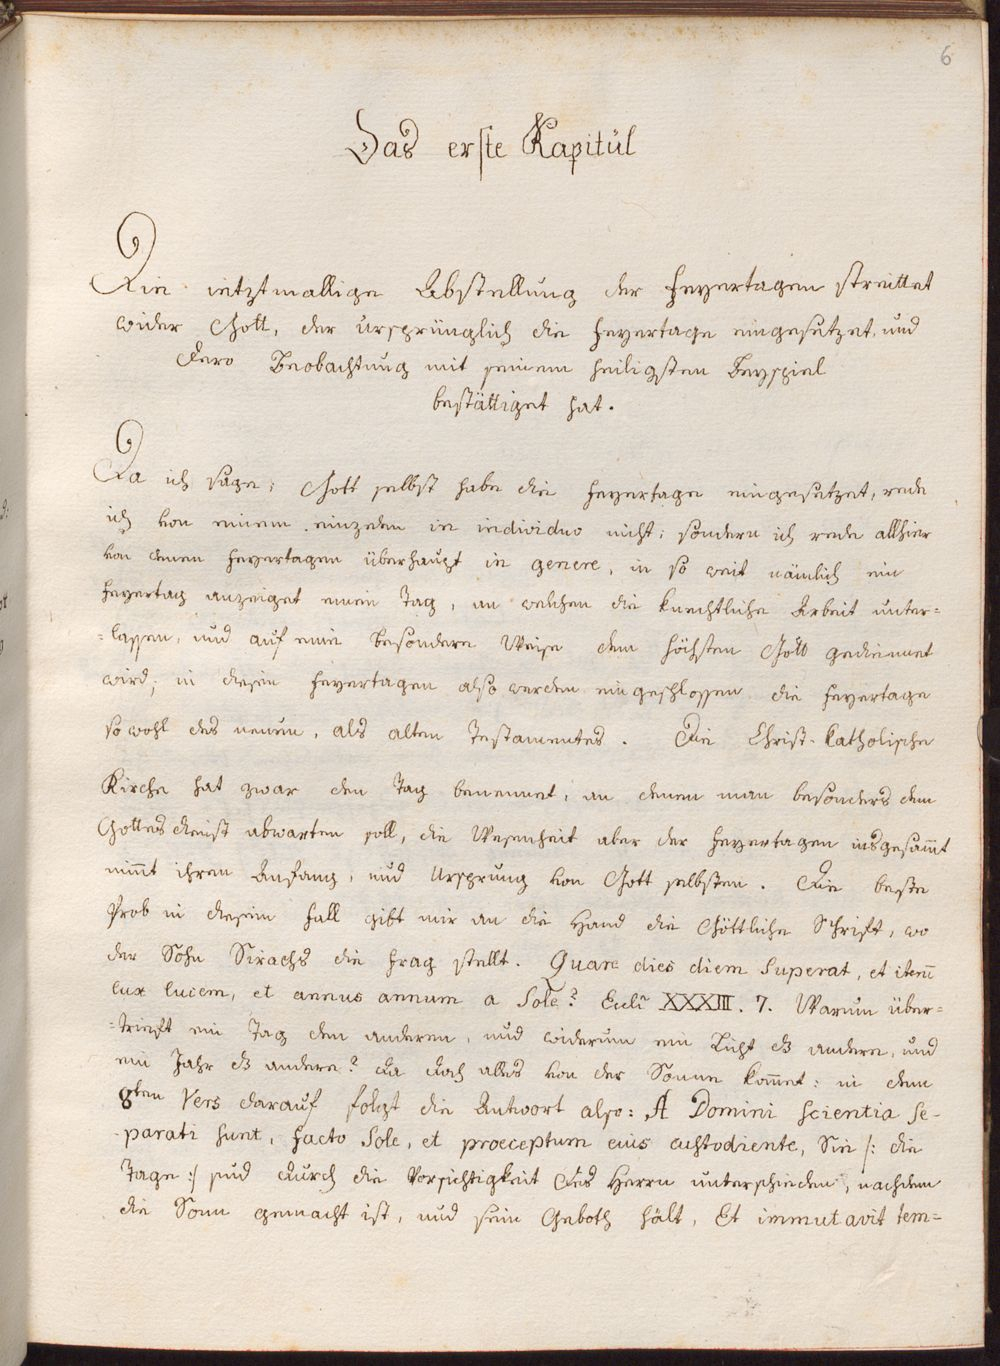 6
Das erste Kapitül
Die ietztmallige Abstellung der Feyertagen streittet
wider Gott, der ursprünglich die Feyertage eingesetzet, und
dero Beobachtung mit seinem heiligsten Beyspiel
bestättiget hat.
Da ich sage: Gott selbst habe die Feyertage eingesetzet, rede
ich von einem einzeden in individuo nicht; sondern ich rede allhier
von denen Feyertagen überhaupt in genere, in so weit nämlich ein
Feyertag anzeiget einen Tag, an welchen die knechtliche Arbeit unter=
=lassen, und auf eine besondere Weise dem höchsten Gott gediennet
wird; in diesen Feyertagen also werden eingeschlossen die Feyertage
so wohl des neuen, als alten Testamentes. Die Christ-katholische
Kirche hat zwar den Tag benennet, an denem man besonders dem
Gottesdienst abwarten soll, die Wesenheit aber der Feyertagen insgesam̄t
nim̄t ihren Anfang, und Ursprung von Gott selbsten. Die beste
Prob in diesem Fall gibt mir an die Hand die Göttliche Schrift, wo
der Sohn Sirachs die Frag stellt. Quare dies diem superat, et iterū
lux lucem, et annus annum a Sole? Eccli XXXIII. 7. Warum über=
=trieft ein Tag den anderen, und widerum ein Licht dz andere, und
ein Jahr dz andere? da doch alles von der Sonne kom̄et: in dem
8ten Vers darauf folgt die Antwort also: A Domini scientia se-
-parati sunt, facto Sole, et proeceptum eius custodiente, Sie /: die
Tage :/ sind durch die Vorsichtigkeit des Herrn unterschieden, nachdem
die Sonn gemacht ist, und sein Geboth hält, Et immutavit tem=